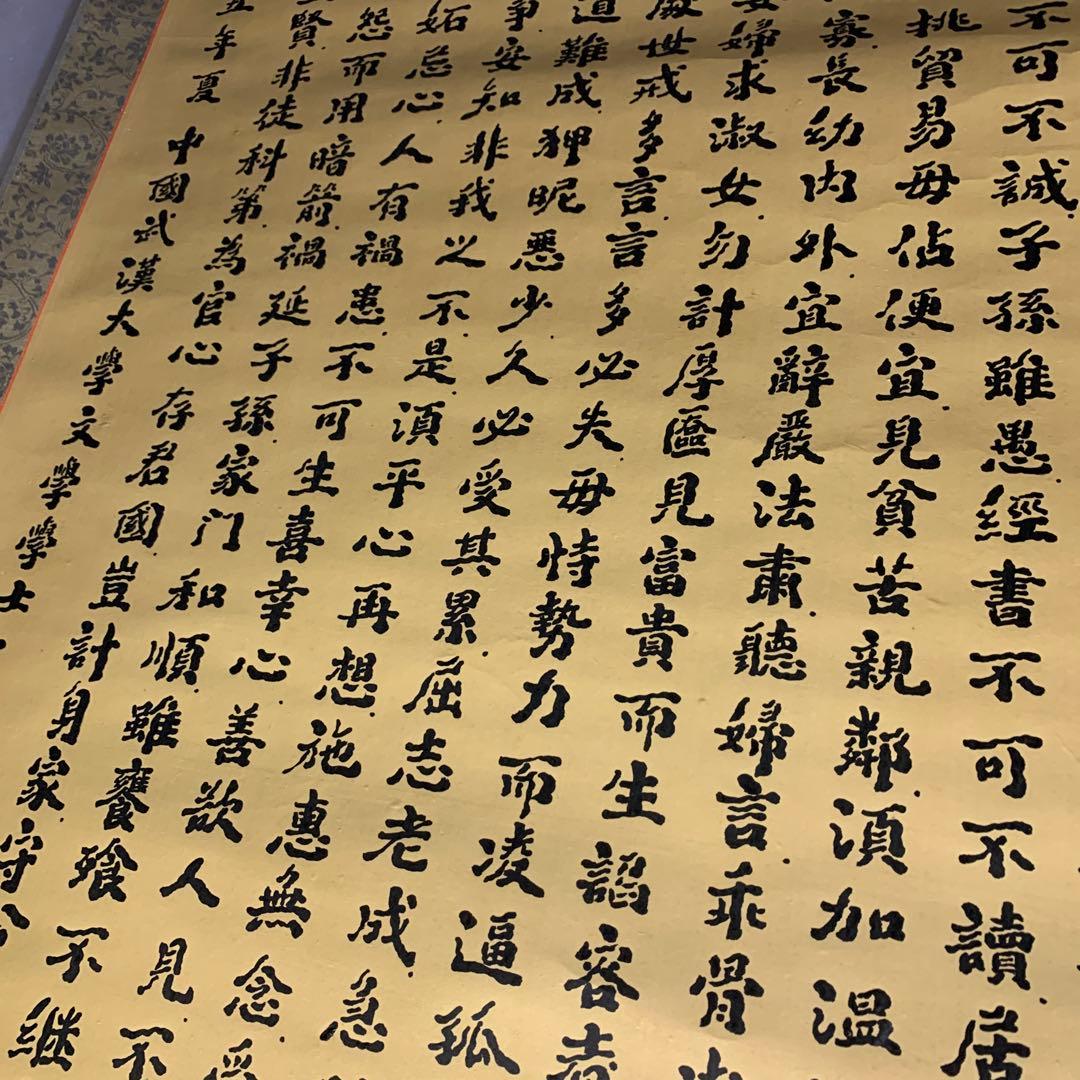 不可不誠子孫雖愚經書不可不讀居
挑貿易毋佔便宜見貧苦親鄰須加温
寡長幼内外宜辭嚴法肅聽婦言乖骨
婦求淑女勿計厚匳見富貴而生諂容者
處世戒多言言多必失毋恃勢力而凌逼孤
道難成狎昵惡少久必受其累屈志老成急
爭安知非我之不是須平心再想施惠無念受
妬忌心人有禍患不可生喜幸心善欲人見不
怨而用暗箭禍延子孫家門和順雖饔飱不繼
賢非徒科第為官心存君國豈計身家守分
五年夏 中國武漢大學文學學士